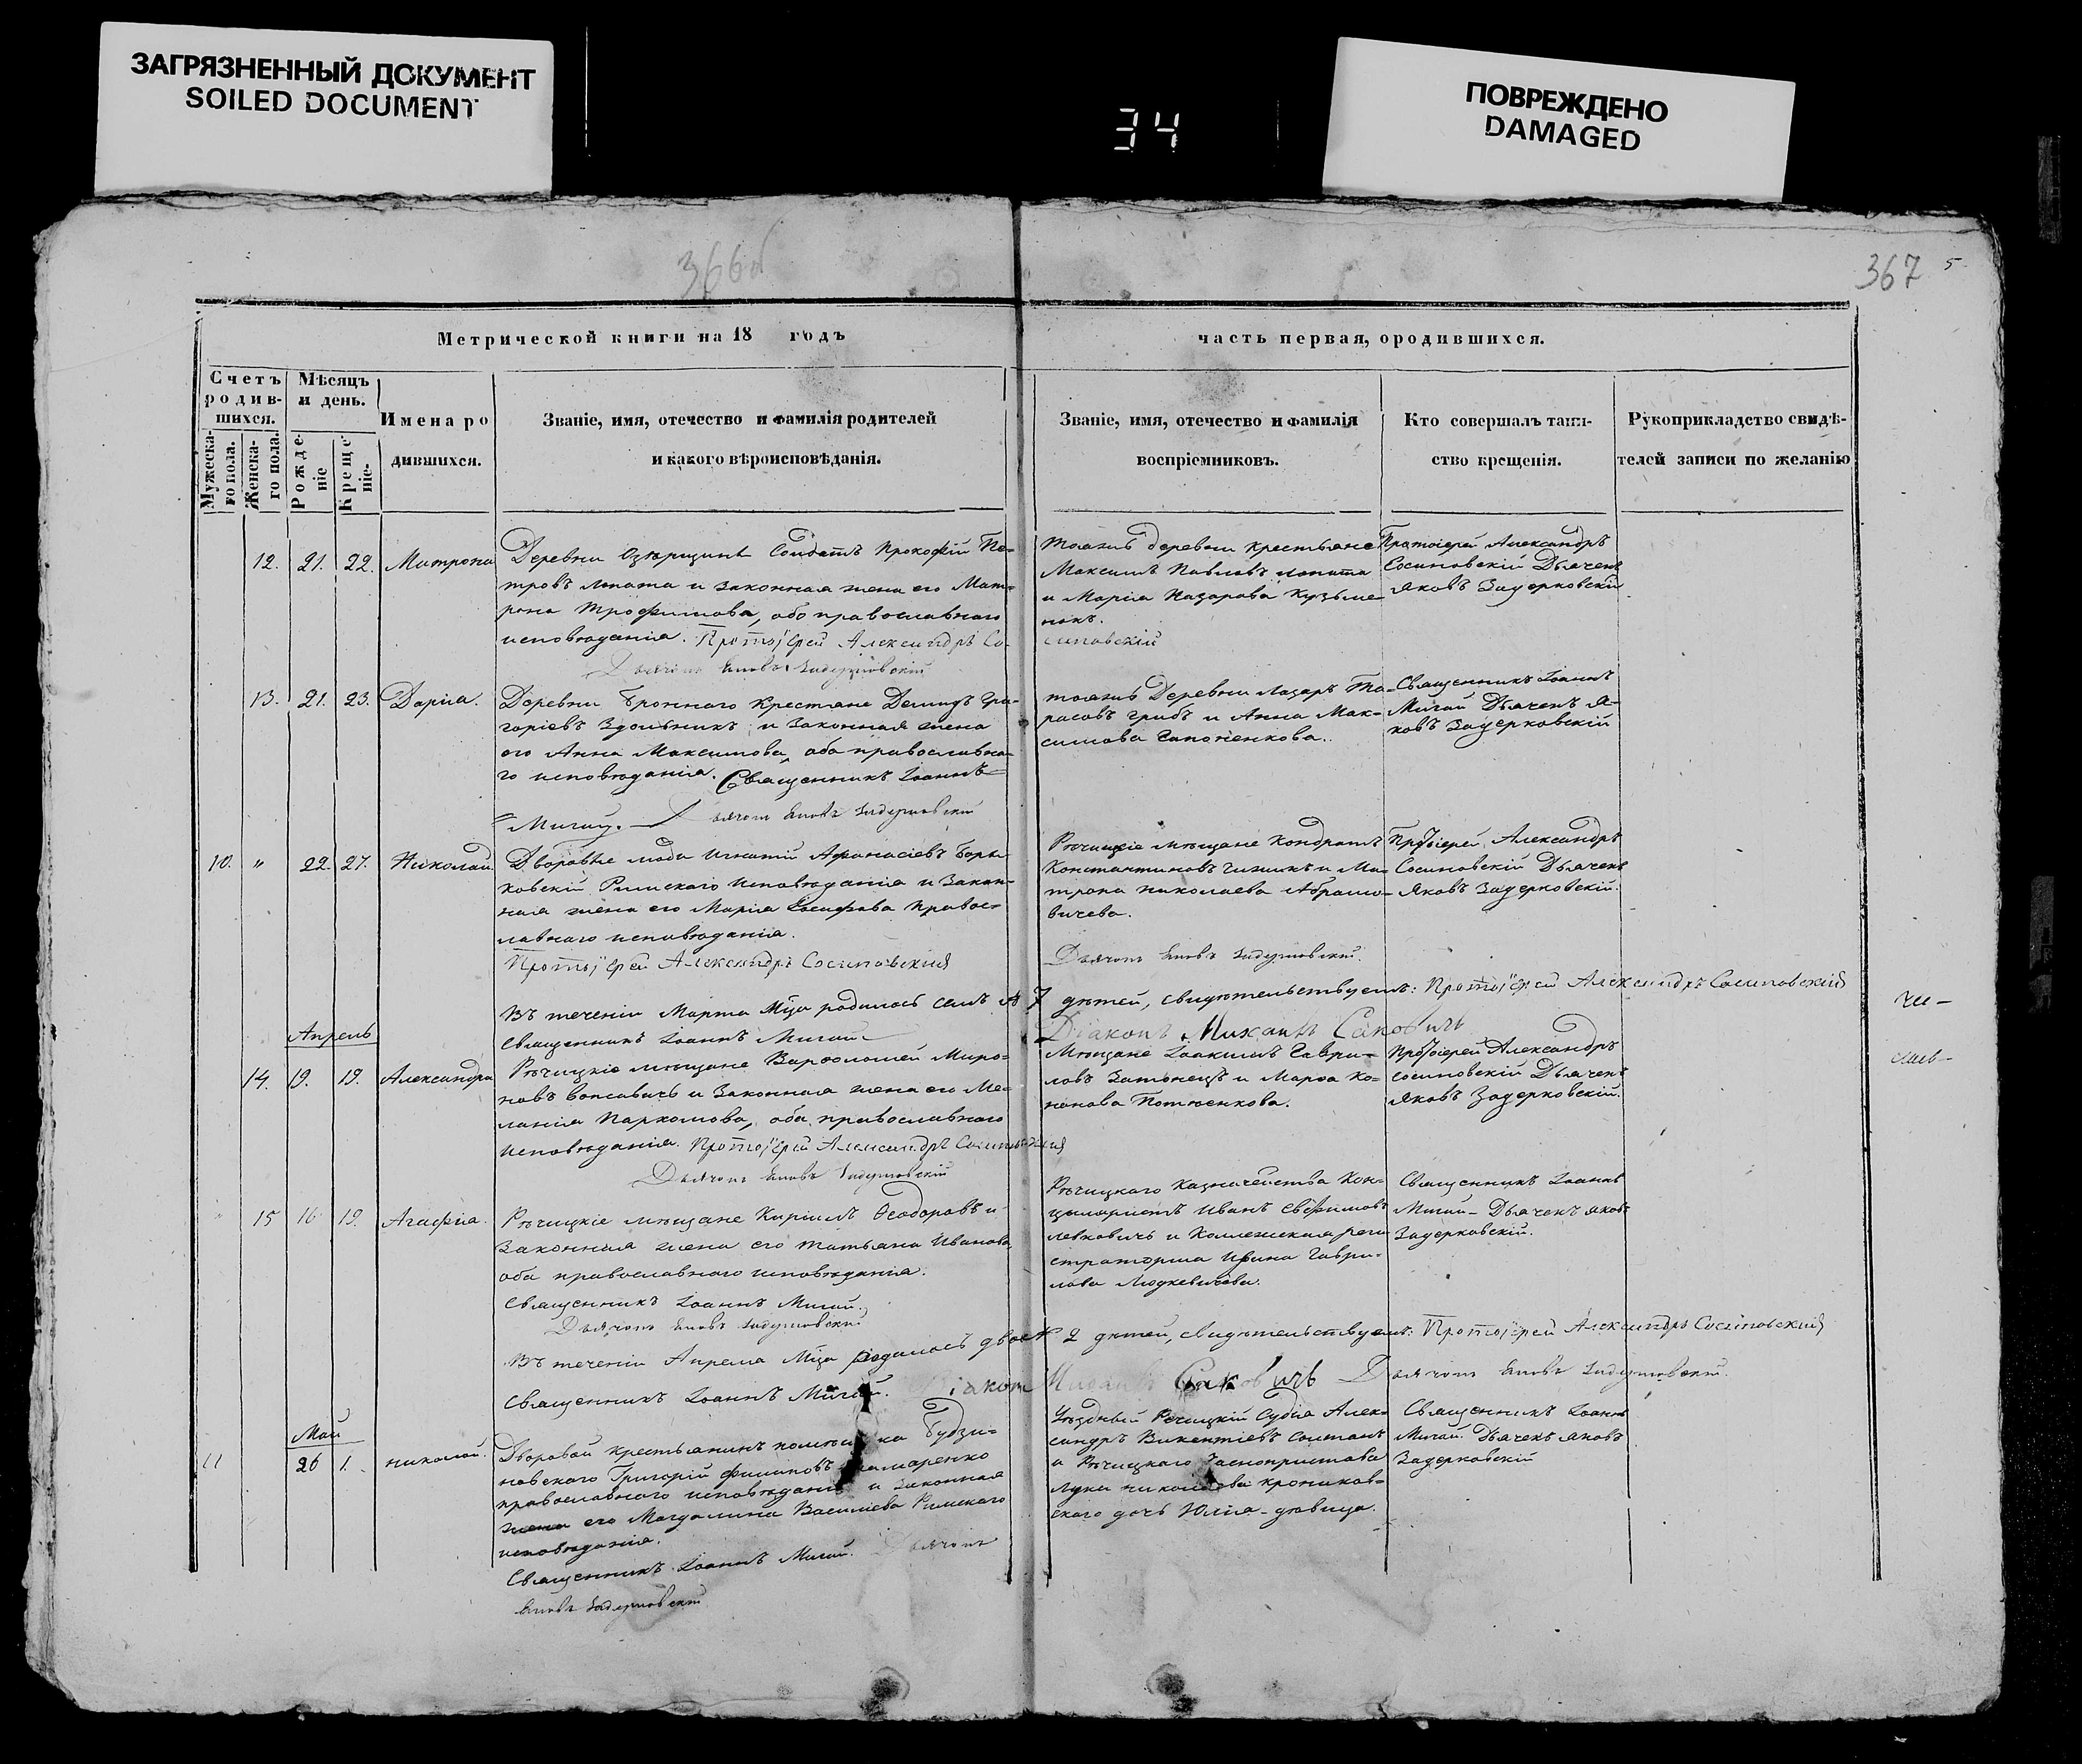 ЗАГРЯЗНЕННЫЙ ДОКУМЕНТ
SOILED DOCUMENT
34
ПОВРЕЖДЕНО
DAMAGED
366об
367
5
Метрической книги на 18 годъ
часть первая, ородившихся.
Счетъ родив-шихся.
Мужеска-го пола.
Женска-го пола.
Мѣсяцъ и день.
Рожде-ніе
Креще-ніе.
Имена ро
дившихся.
Званіе, имя, отечество и фамилія родителей
и какого вѣроисповѣданія.
Званіе, имя, отечество и фамилія
воспріемниковъ.
Кто совершалъ таин-
ство крещенія.
Рукоприкладство свидѣ-
телей записи по желанію
12. 21. 22. Матрона
Деревни Озерщины Солдатъ Прокофій Пе-
тровъ Лопата и законная жена его Мат-
рона Трофимова, оба православнаго
исповѣданія. Протоіерей Александръ Со-
синовскій
Дьячокъ Яковъ Задерковскій
тояжъ деревни крестьяне
Максимъ Павловъ Лопата
и Марія Назарова Кузьме-
нокъ.
Протоіерей Александръ
Сосиновскій Дьячекъ
Яковъ Задерковскій
13. 21. 23. Дарія.
Деревни Броннаго Крестяне Демидъ Гри-
горіевъ Здольникъ и Законная жена
его Анна Максимова, оба православна-
го исповѣданія. Священникъ Іоаннъ
Мигай. Дьячокъ Яковъ Задерковскій
тояжъ Деревни Лазарь Та-
расовъ Грибъ и Анна Мак-
симова Гапоненкова.
Священникъ Іоаннъ
Мигай Дьячекъ Я-
ковъ Задерковскій
10. " 22. 27. Николай
Дворовые люди Игнатій Афанасіевъ
Римскаго исповѣданія и Закон-
ная жена его Марія Іосифова Правос-
лавнаго исповѣданія.
Протоіерей Александръ Сосиновскій
Рѣчицкіе мѣщане Кондратъ
Константиновъ Чижикъ и Ма-
трона Николаева Абрамо-
вичева.
Дьячокъ Яковъ Задерковскій.
Протоіерей Александръ
Сосиновскій Дьячекъ
Яковъ Задерковскій.
Въ теченіи Марта Мца родилось семъ 7 дѣтей, свидѣтельствуемъ: Протоіерей Александръ Сосиновскій
Священникъ Іоаннъ Мигай
Діаконъ Михаилъ Саковичъ
Апрель
14. 19. 19. Александра
Рѣчицкіе мѣщане Варѳоломей Миро-
новъ и Законная жена его Ме-
ланія Пархомова, оба православнаго
исповѣданія. Протоіерей Александръ Сосиновскій
Дьячокъ Яковъ Задерковскій
Мѣщане Іоакимъ Гаври-
ловъ и Марѳа Ко-
нонова
Протоіерей Александръ
Сосиновскій Дьячекъ
Яковъ Задерковскій.
15 16 19. Агафія.
Рѣчицкіе мѣщане Кириллъ Ѳеодоровъ и
Законная жена его Татьяна Иванова,
оба православнаго исповѣданія.
Священникъ Іоаннъ Мигай.
Дьячокъ Яковъ Задерковскій
Рѣчицкаго Казначейства Кан-
целяристъ Иванъ Евфимовъ
Левковичъ и Коллежская реги-
страторша Ирина Гаври-
лова
Священникъ Іоаннъ
Мигай Дьячекъ Яковъ
Задерковскій.
Въ теченіи Апреля Мца родилось двое 2 дѣтей, свидѣтельствуемъ: Протоіерей Александръ Сосиновскій
Священникъ Іоаннъ Мигай. Діаконъ Михаилъ Саковичъ Дьячокъ Яковъ Задерковскій.
Май
11 26 1. николай.
Дворовой крестьянинъ Будзи-
новскаго Григорій Филиповъ
православнаго исповѣданія и Законная
жена его Магдалина Василіева Римскаго
исповѣданія.
Священникъ Іоаннъ Мигай. Дьячокъ
Яковъ Задерковскій
Уѣздный Речицкій Судія Алек-
сандръ Викентіевъ
и Рѣчицкаго
Луки Николаева Кроников-
скаго дочь Юлія-дѣвица.
Священникъ Іоаннъ
Мигай. Дьячекъ Яковъ
Задерковскій